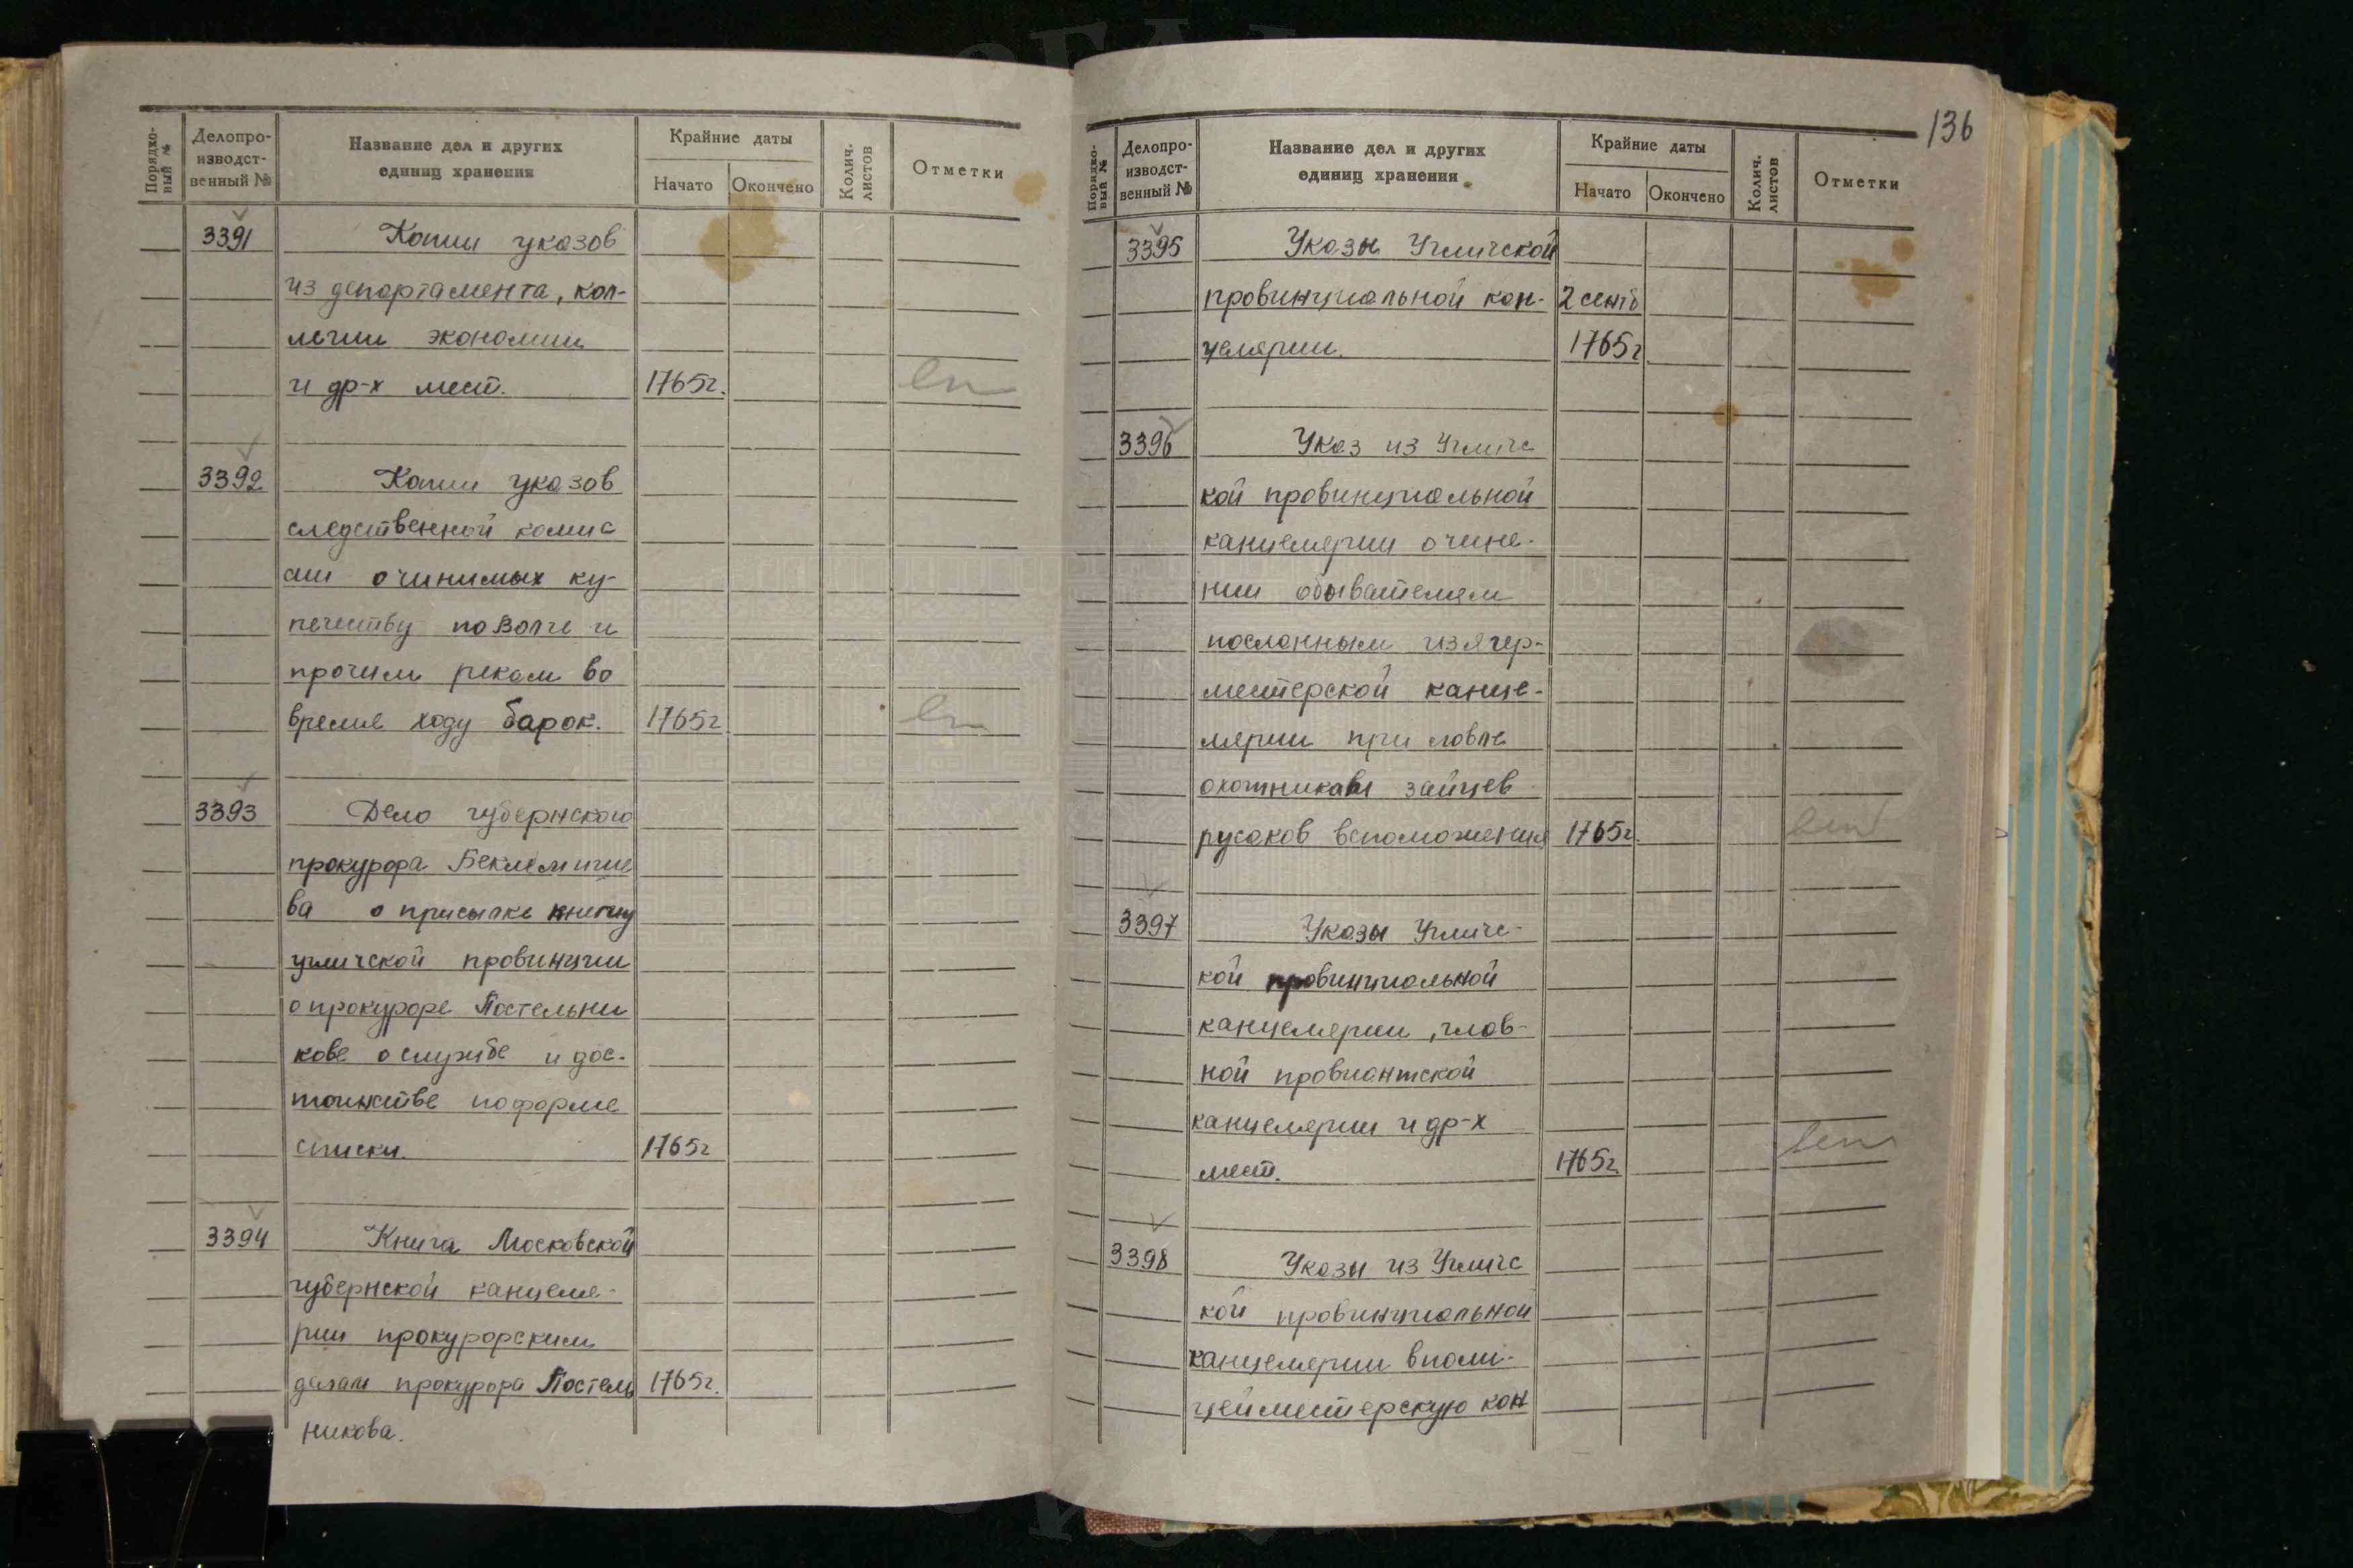 Порядко-
вый №
Делопро-
изводст-
венный №
Название дел и других
единиц хранения
Крайние даты
Начато
Окончено
Колич.
листов
Отметки
3391
Копии указов
из департамента, кол-
легии экономии
и др-х мест.
1765г.
3392
Копии указов
следственной комис
сии о чинимых ку-
печеству по Волге и
прочим рекам во
время ходу барок.
1765г
3393
Дело губернского
прокурора Беклемише
ва о присылке книги
угличской провинции
о прокуроре Постельни
кове о службе и дос-
тоинстве по форме
списки.
1765г
3394
Книга Московской
губернской канцеля-
рии прокурорским
делам прокурора Постель
1765г.
никова.
136
Порядко-
вый №
Делопро-
изводст-
венный №
Название дел и других
единиц хранения
Крайние даты
Начато
Окончено
Колич.
листов
Отметки
3395
Указы Угличской
провинциальной кан-
2 сентб
целярии.
1765г
3396
Указ из Угличс
кой провинциальной
канцелярии о чине-
нии обывателям
посланным из ягер-
мейстерской канце-
лярии при ловле
охотниками зайцев
русаков вспоможения
1765г.
3397
Указы Угличс-
кой провинциальной
канцелярии, глав-
ной провиантской
канцелярии и др-х
мест.
1765г.
3398
Указы из Угличс
кой провинциальной
канцелярии в поли-
цеймейстерскую кон